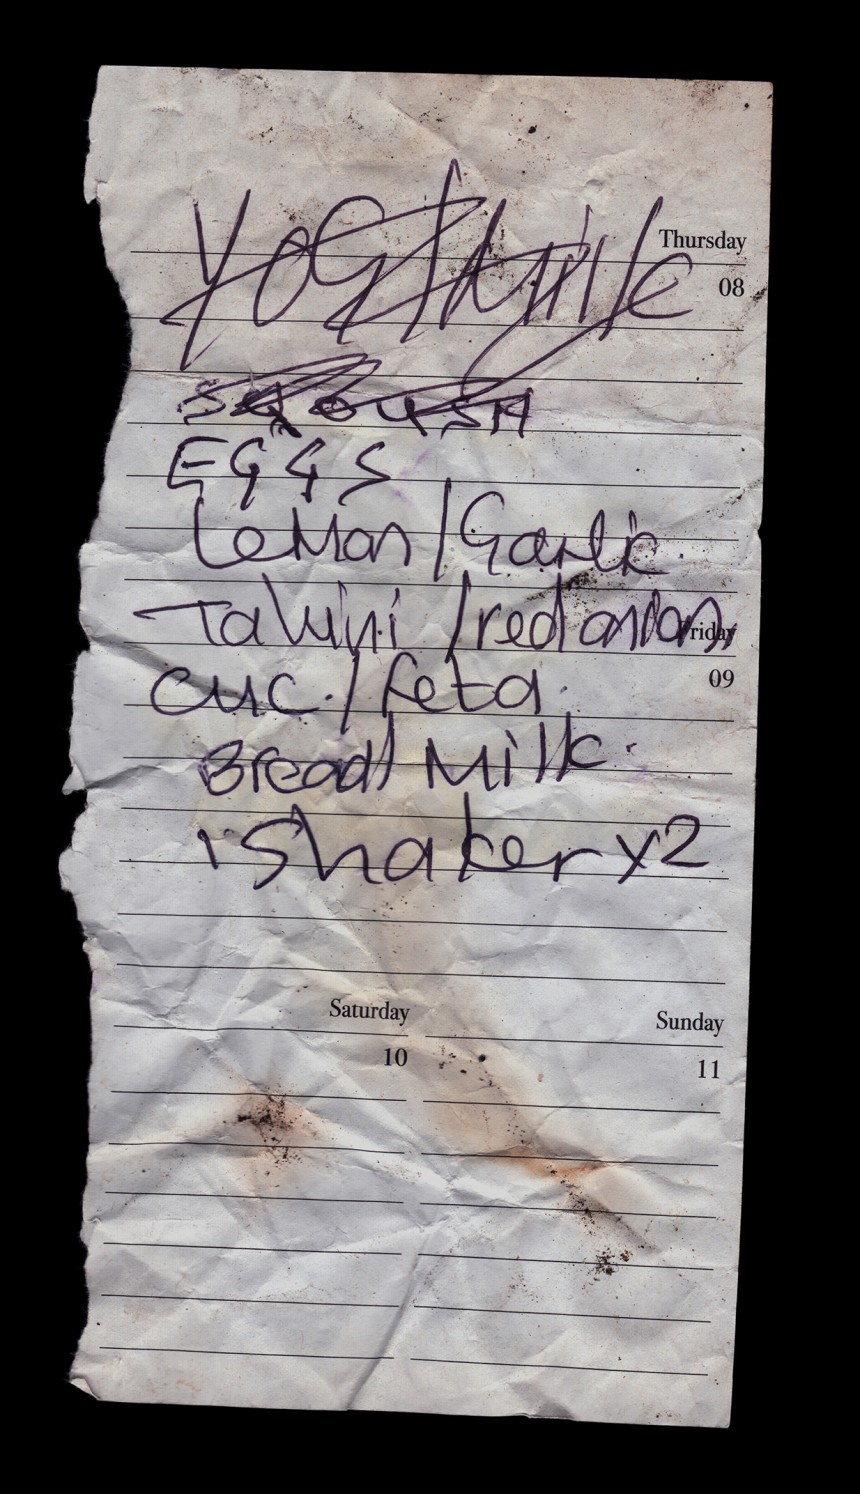 YOG/Milk
Thursday
08
SQOUSH
EGGS
Lemon/Garlic
Tahini/red onion,
Friday
09
cuc./feta.
Bread/Milk.
1 Shaker x2
Saturday
Sunday
10
11